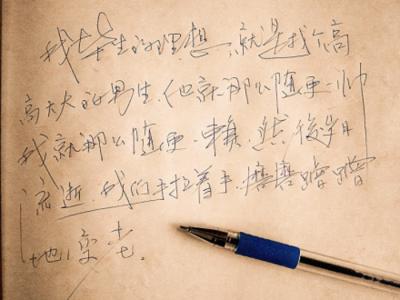 我毕生的理想，就是找个高
高大大的男生，他就那么随便一帅
我就那么随便一赖，然後岁月
流逝，我们手拉着手，磨磨蹭蹭
地变老。